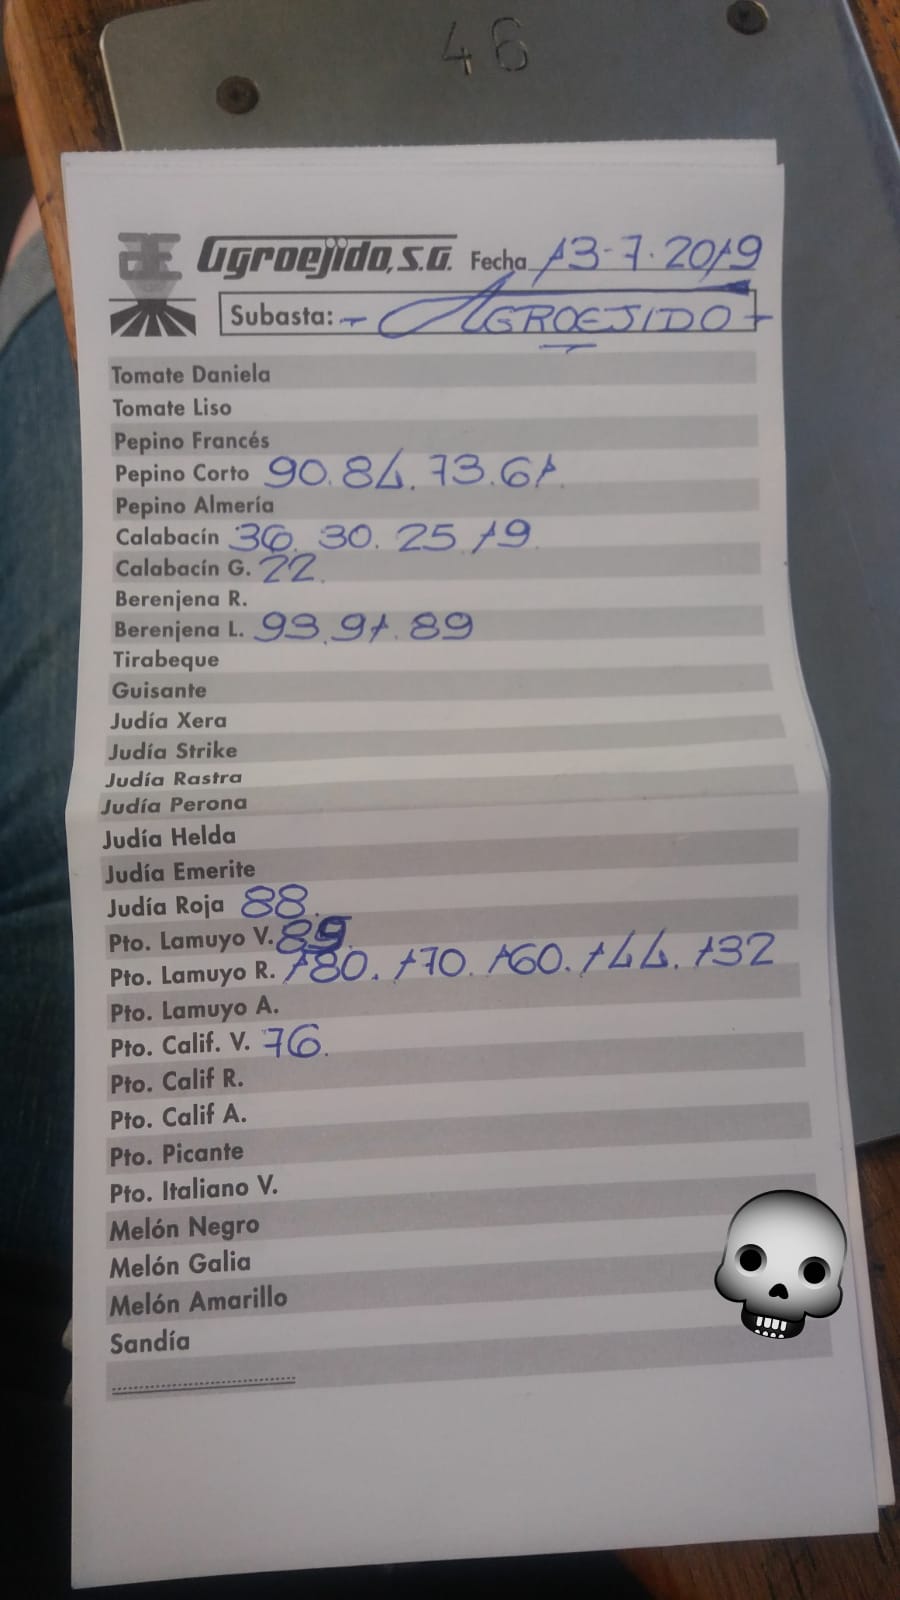 46
Agroejido, S.A. Fecha 13-7-2019
Subasta: - AGROEJIDO -
Tomate Daniela
Tomate Liso
Pepino Francés
Pepino Corto 90. 84. 73. 61.
Pepino Almería
Calabacín 36. 30. 25. 19.
Calabacín G. 22.
Berenjena R.
Berenjena L. 93. 91. 89
Tirabeque
Guisante
Judía Xera
Judía Strike
Judía Rastra
Judía Perona
Judía Helda
Judía Emerite
Judía Roja 88.
Pto. Lamuyo V. 89.
Pto. Lamuyo R. 180. 170. 160. 144. 132
Pto. Lamuyo A.
Pto. Calif. V. 76.
Pto. Calif R.
Pto. Calif A.
Pto. Picante
Pto. Italiano V.
Melón Negro
Melón Galia
Melón Amarillo
Sandía